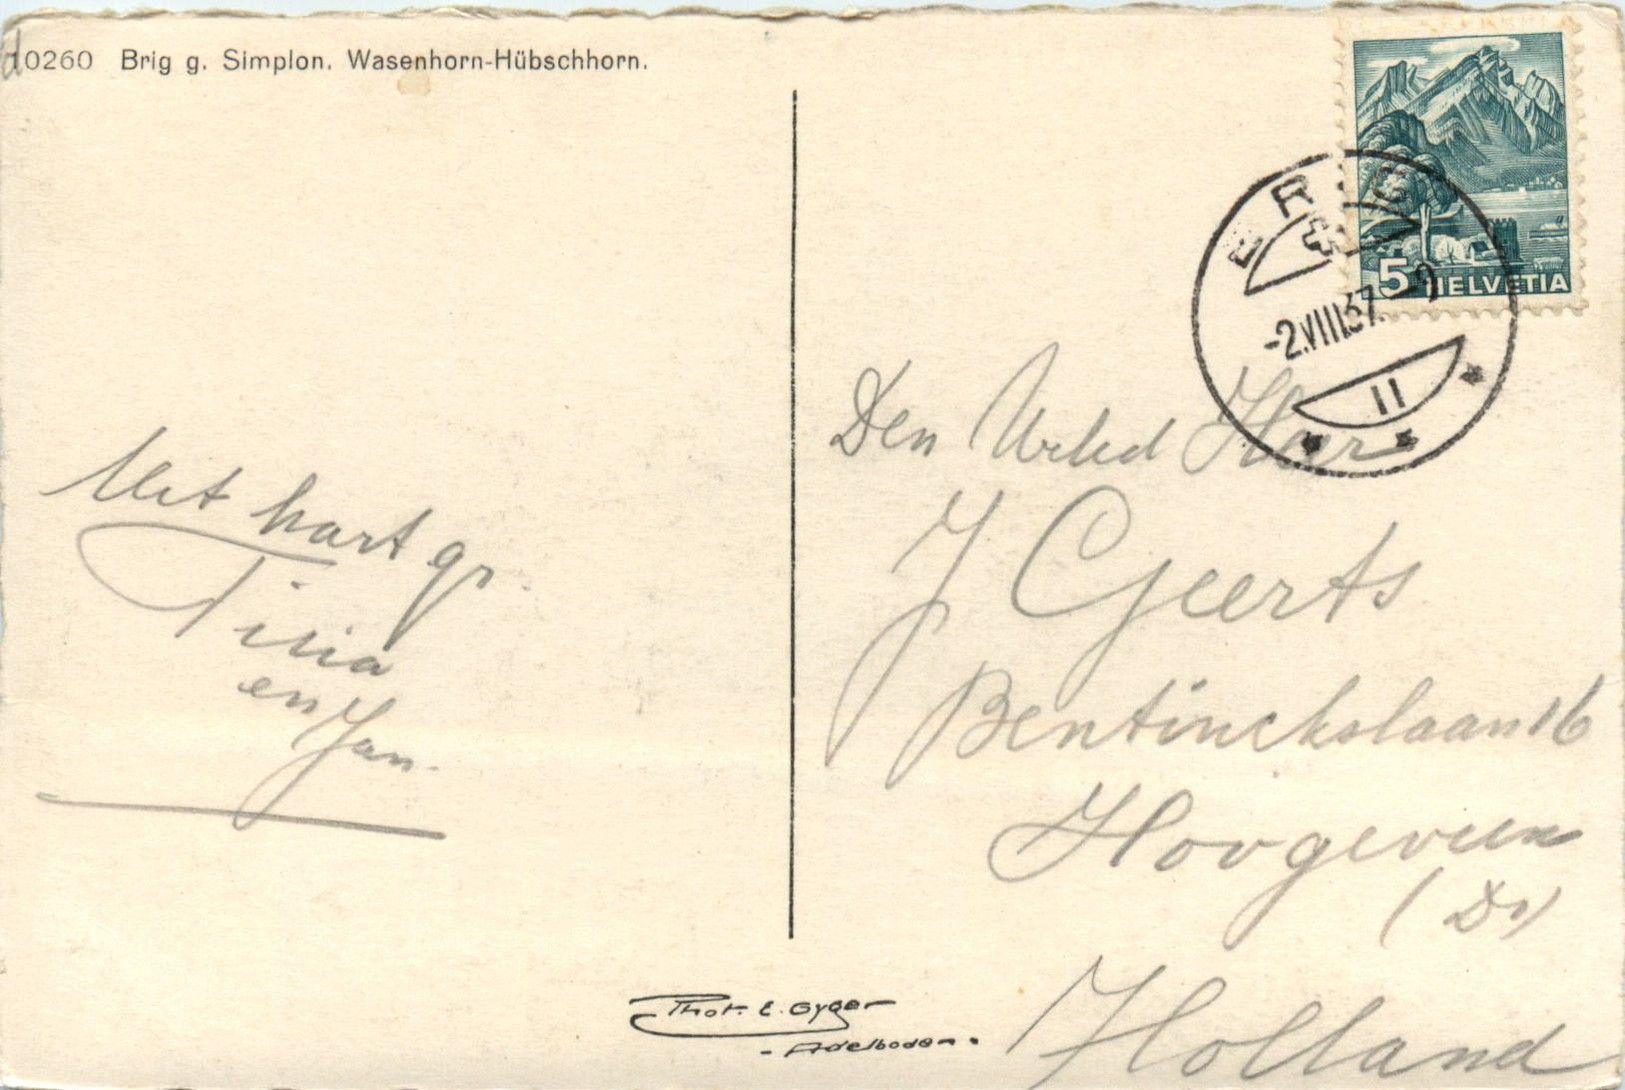 10260 Brig g. Simplon. Wasenhorn-Hübschhorn.
5 HELVETIA
BRIG
-2.VIII.37.-9
II
Met hart gr
Tinia
en Jan.
Den Weled Heer
J Geerts
Bentinckslaan 16
Hoogeveen
(Dr)
Holland
Phot. E. Gyger
- Adelboden.